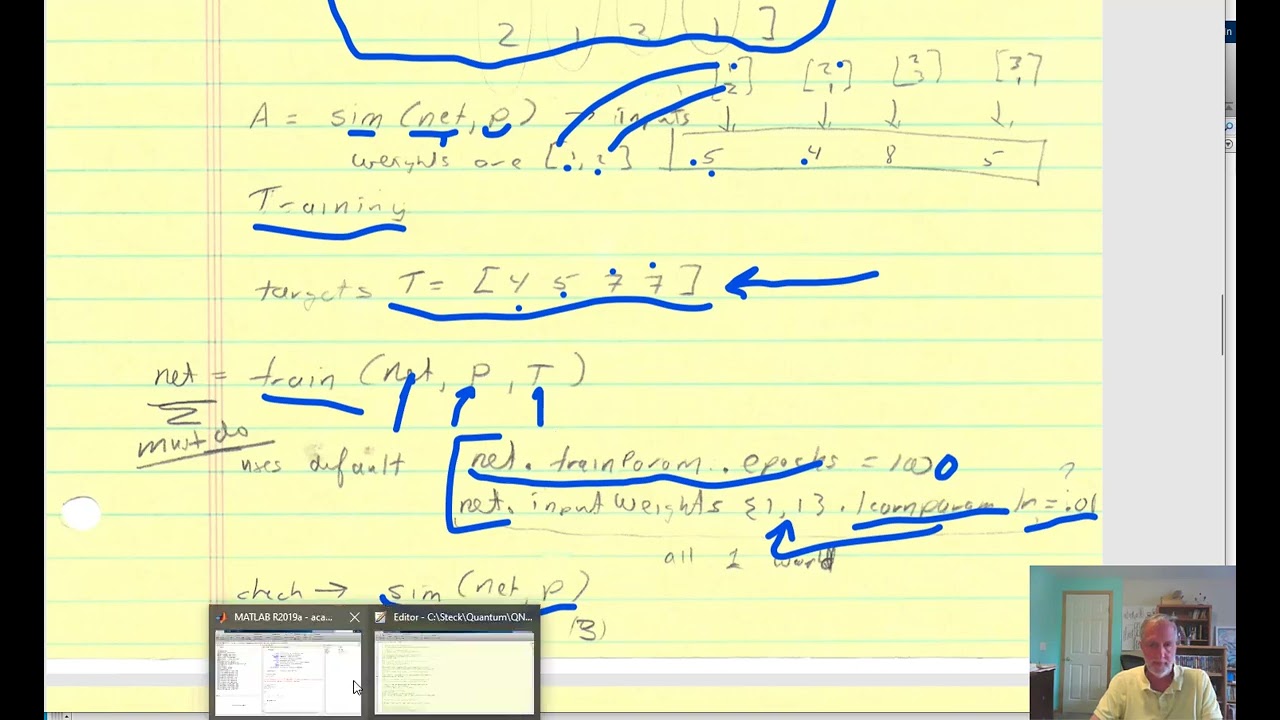 2 1 3 1 ]
[1 2] [2 1] [2 3] [3 1]
A = sim (net, p) → inputs ↓ ↓ ↓ ↓
weights are [1, 2] 5 4 8 5
Training
targets T = [ 4 5 7 7 ]
net = train (net, P, T)
must do
uses default net. trainParam. epochs = 1000
?
net. inputWeights {1,1}. learnparam. lr = .01
all 1 word
check → sim (net, p)
(3)
MATLAB R2019a - aca...
Editor - C:\Steck\Quantum\QN...